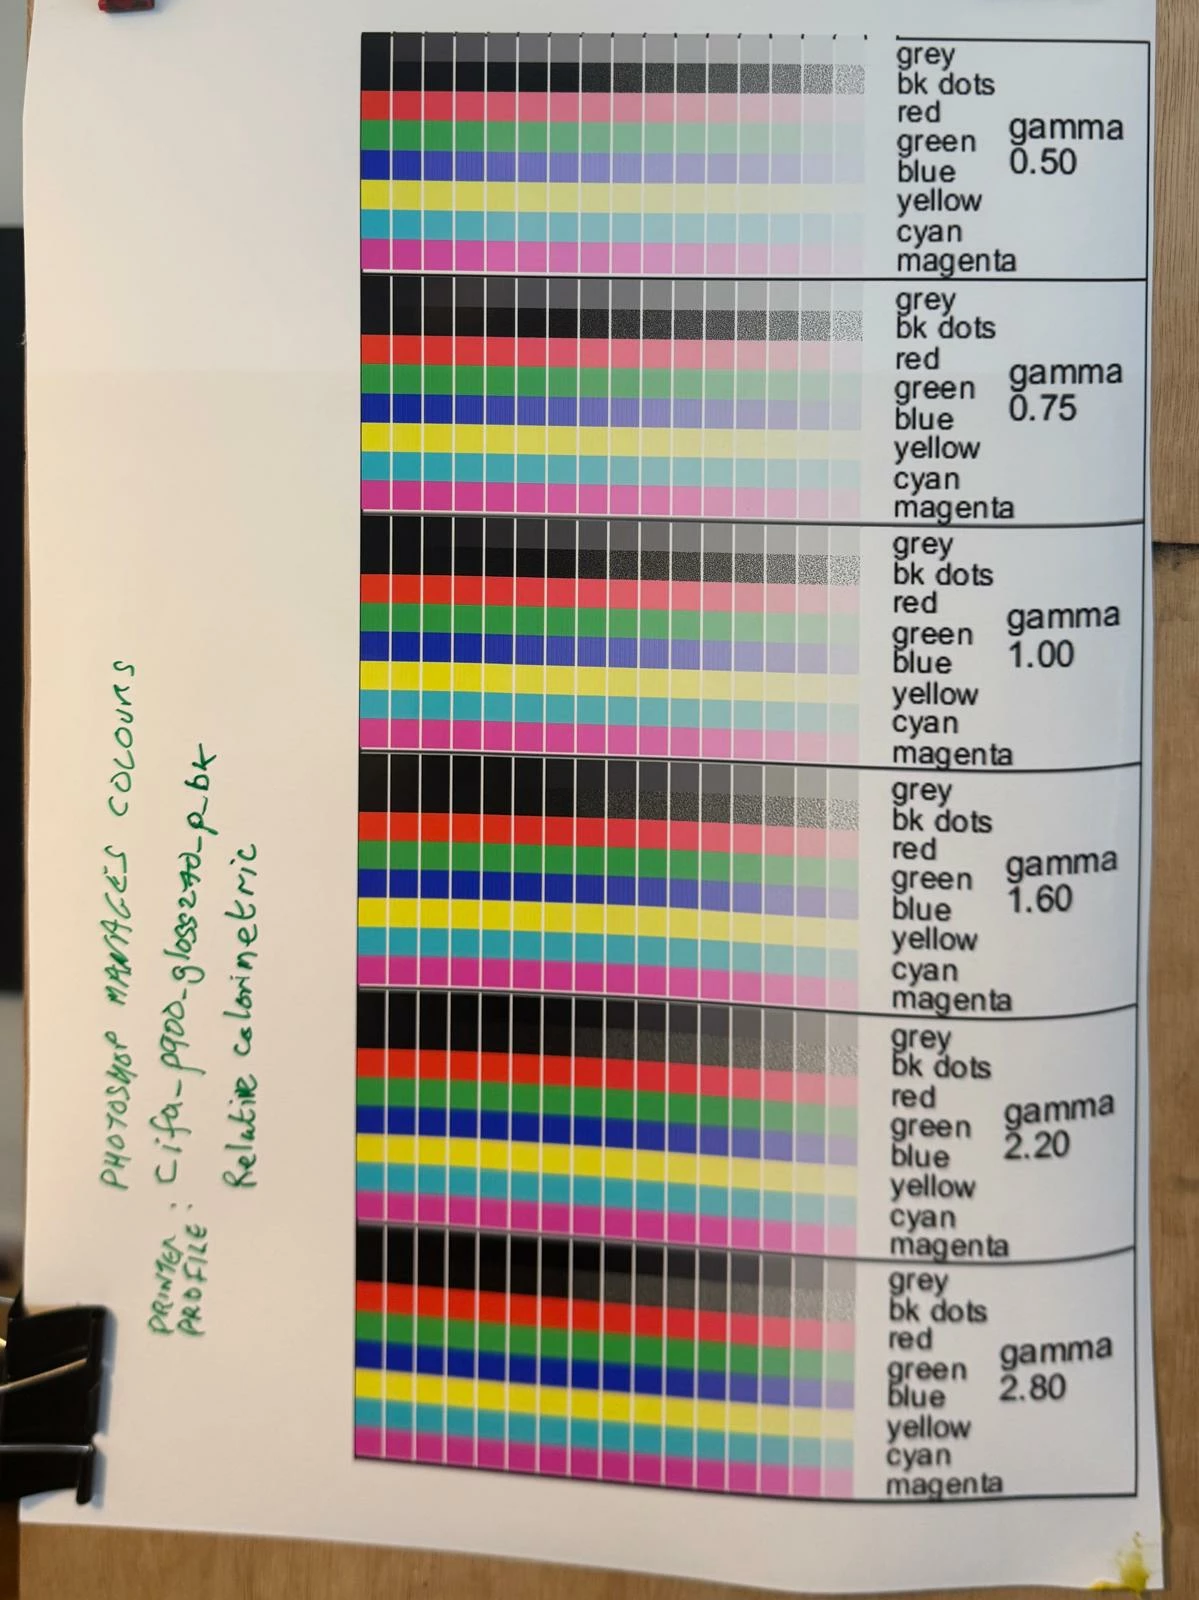 grey
bk dots
red
green
blue
yellow
cyan
magenta
gamma
0.50
grey
bk dots
red
green
blue
yellow
cyan
magenta
gamma
0.75
grey
bk dots
red
green
blue
yellow
cyan
magenta
gamma
1.00
grey
bk dots
red
green
blue
yellow
cyan
magenta
gamma
1.60
grey
bk dots
red
green
blue
yellow
cyan
magenta
gamma
2.20
grey
bk dots
red
green
blue
yellow
cyan
magenta
gamma
2.80
PHOTOSHOP MANAGES COLOURS
PRINTER PROFILE : Cifa_p900_gloss270_p_bk
Relative colorimetric